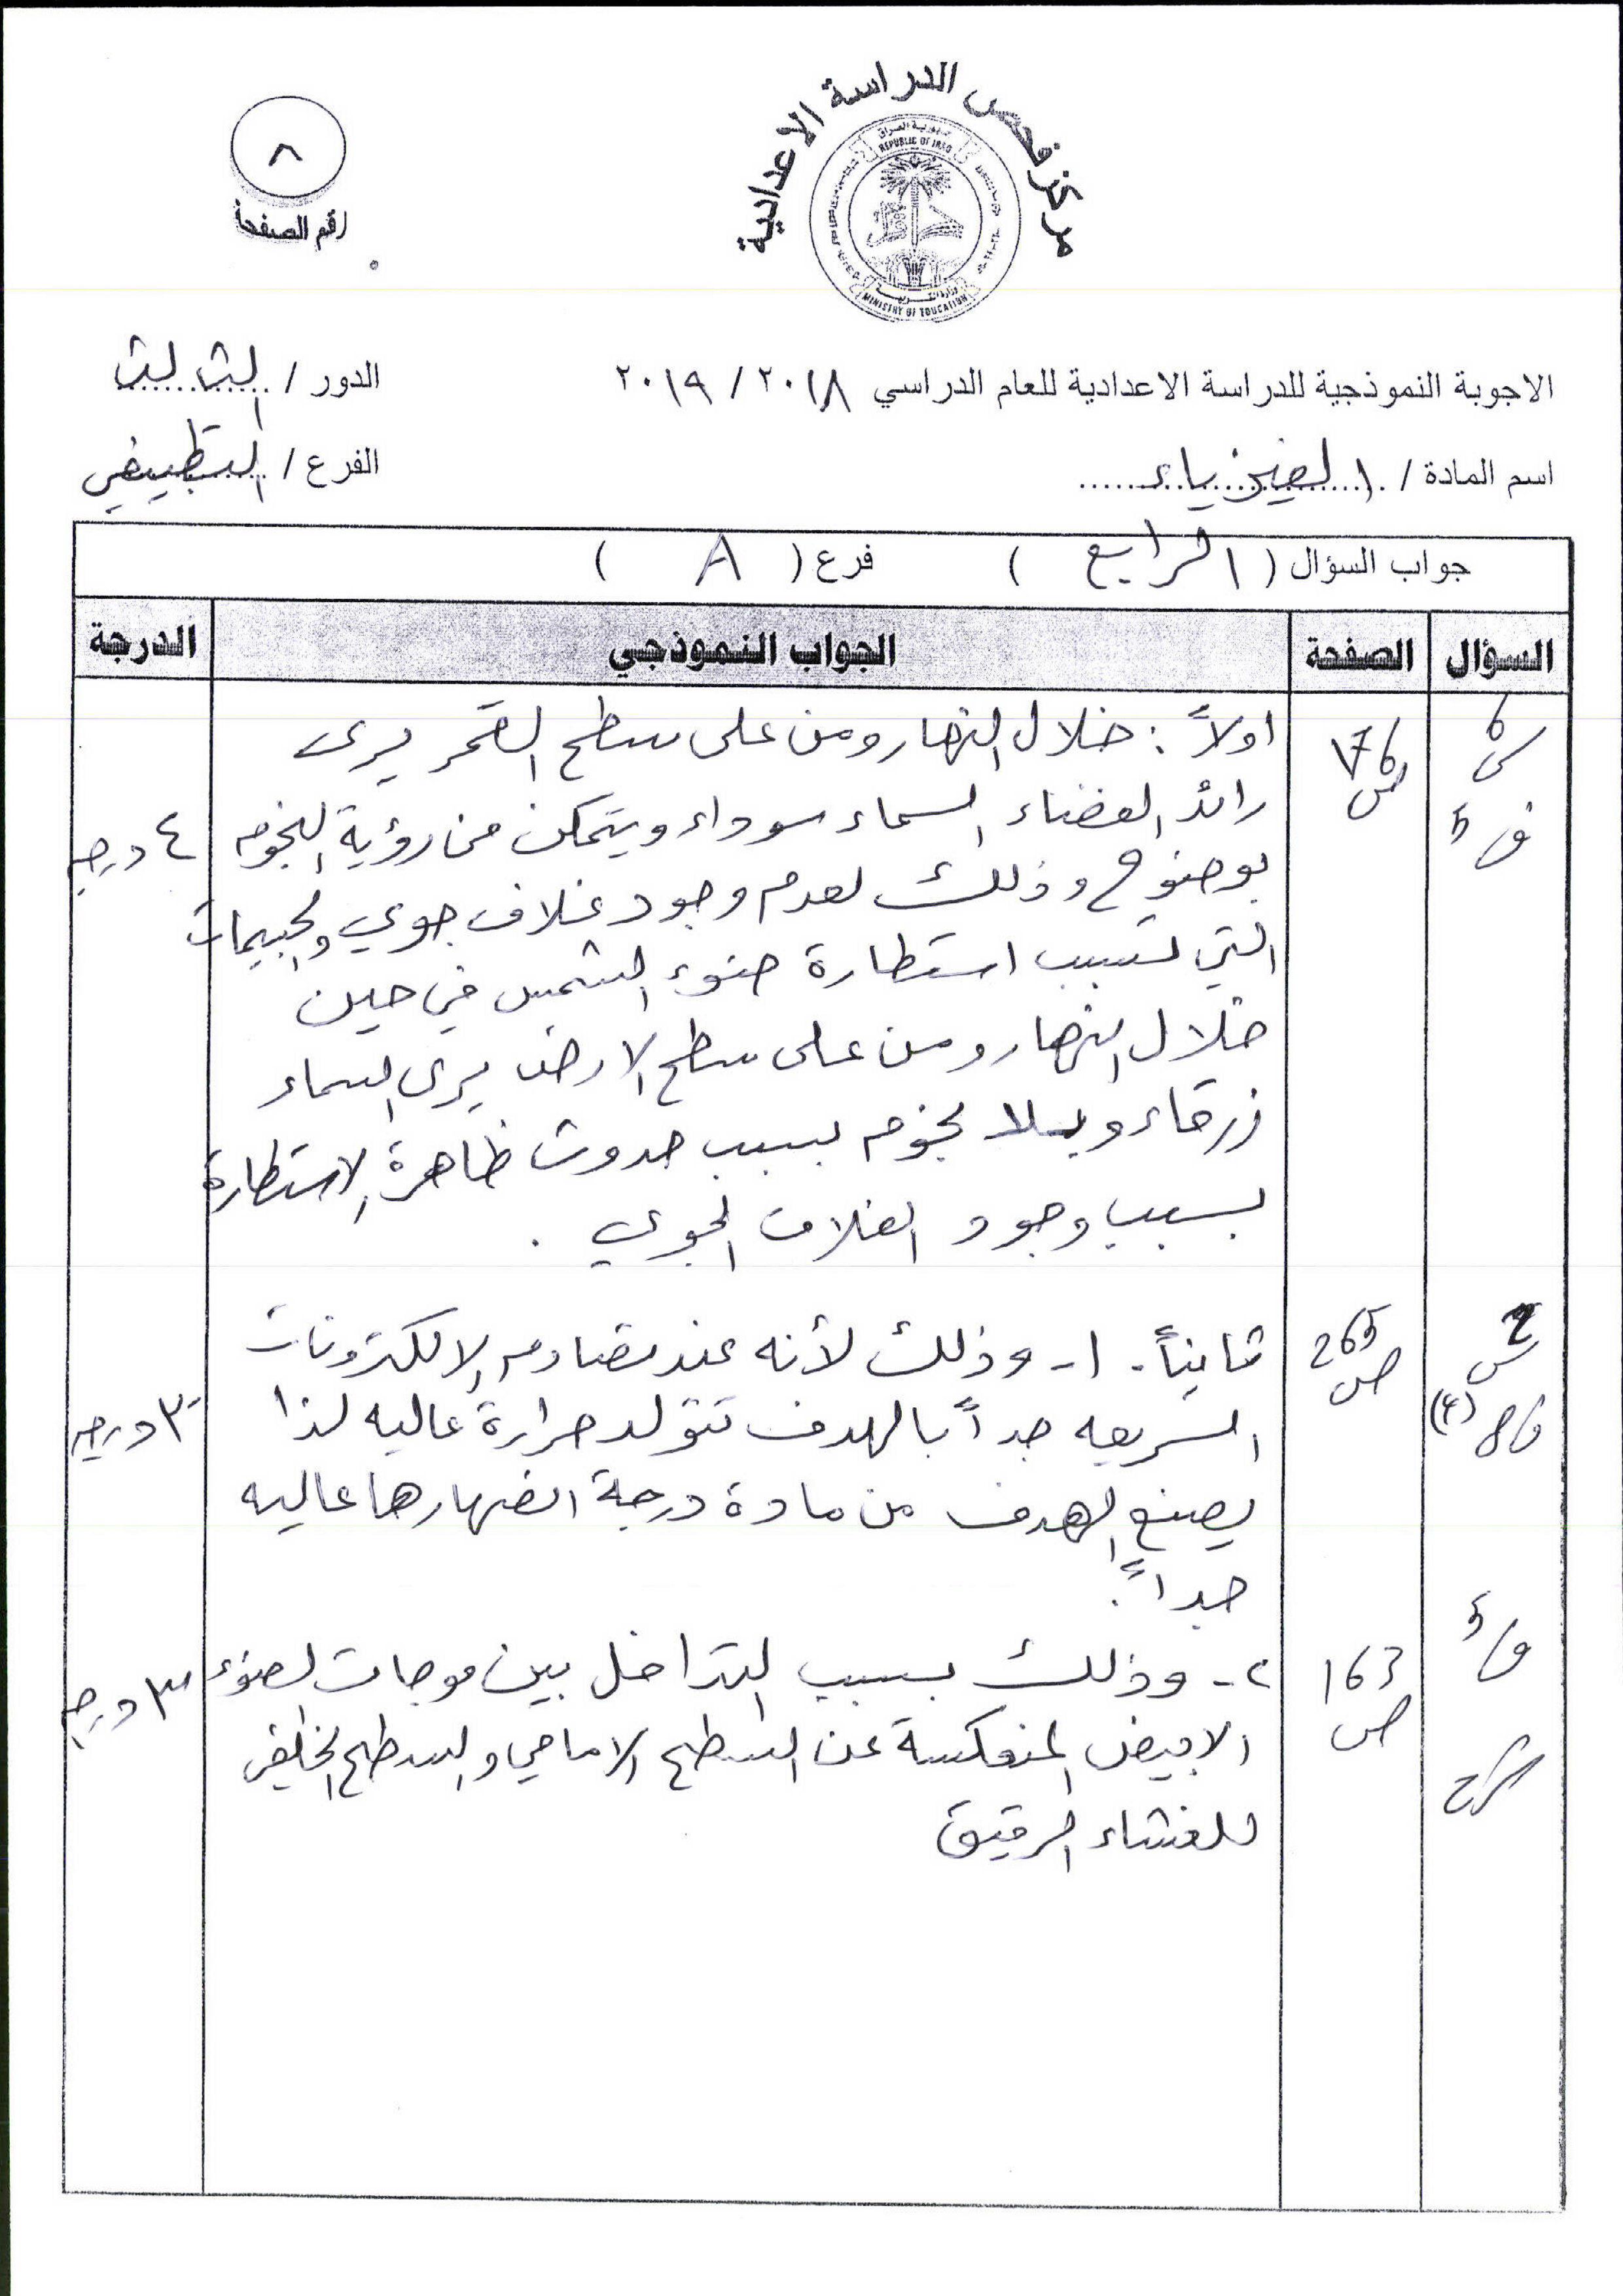 مركز فحص الدراسة الاعدادية
جمهورية العراق
REPUBLIC OF IRAQ
وزارة التربية
MINISTRY OF EDUCATION
٨
رقم الصفحة
الاجوبة النموذجية للدراسة الاعدادية للعام الدراسي ٢٠١٨ / ٢٠١٩
الدور / الثالث
اسم المادة / الفيزياء
الفرع / التطبيقي
جواب السؤال ( الرابع ) فرع ( A )
السؤال الصفحة الجواب النموذجي الدرجة
اولاً : خلال النهار ومن على سطح القمر يرى
رائد الفضاء السماء سوداء ويتمكن من رؤية النجوم
بوضوح وذلك لعدم وجود غلاف جوي والجسيمات
التي تسبب استطارة ضوء الشمس في حين
خلال النهار ومن على سطح الارض يرى السماء
زرقاء وبلا نجوم بسبب حدوث ظاهرة الاستطارة
بسبب وجود الغلاف الجوي .
س 6
ف 5
176 ص
٤ درجة
ثانياً - ١- وذلك لأنه عند تصادم الالكترونات
السريعه جداً بالهدف تتولد حرارة عاليه لذا
يصنع الهدف من مادة درجة انصهارها عاليه
جداً .
س 2
ف 8 (٤)
265 ص
٣ درجه
٢- وذلك بسبب التداخل بين موجات الضوء
الابيض المنعكسة عن السطح الامامي والسطح الخلفي
للغشاء الرقيق
ف 5
شرح
163 ص
٣ درجه